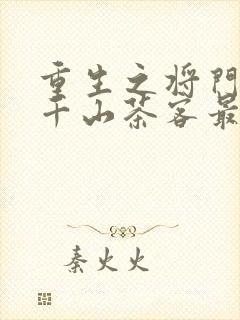 重生之将门
千山茶客最
秦火火